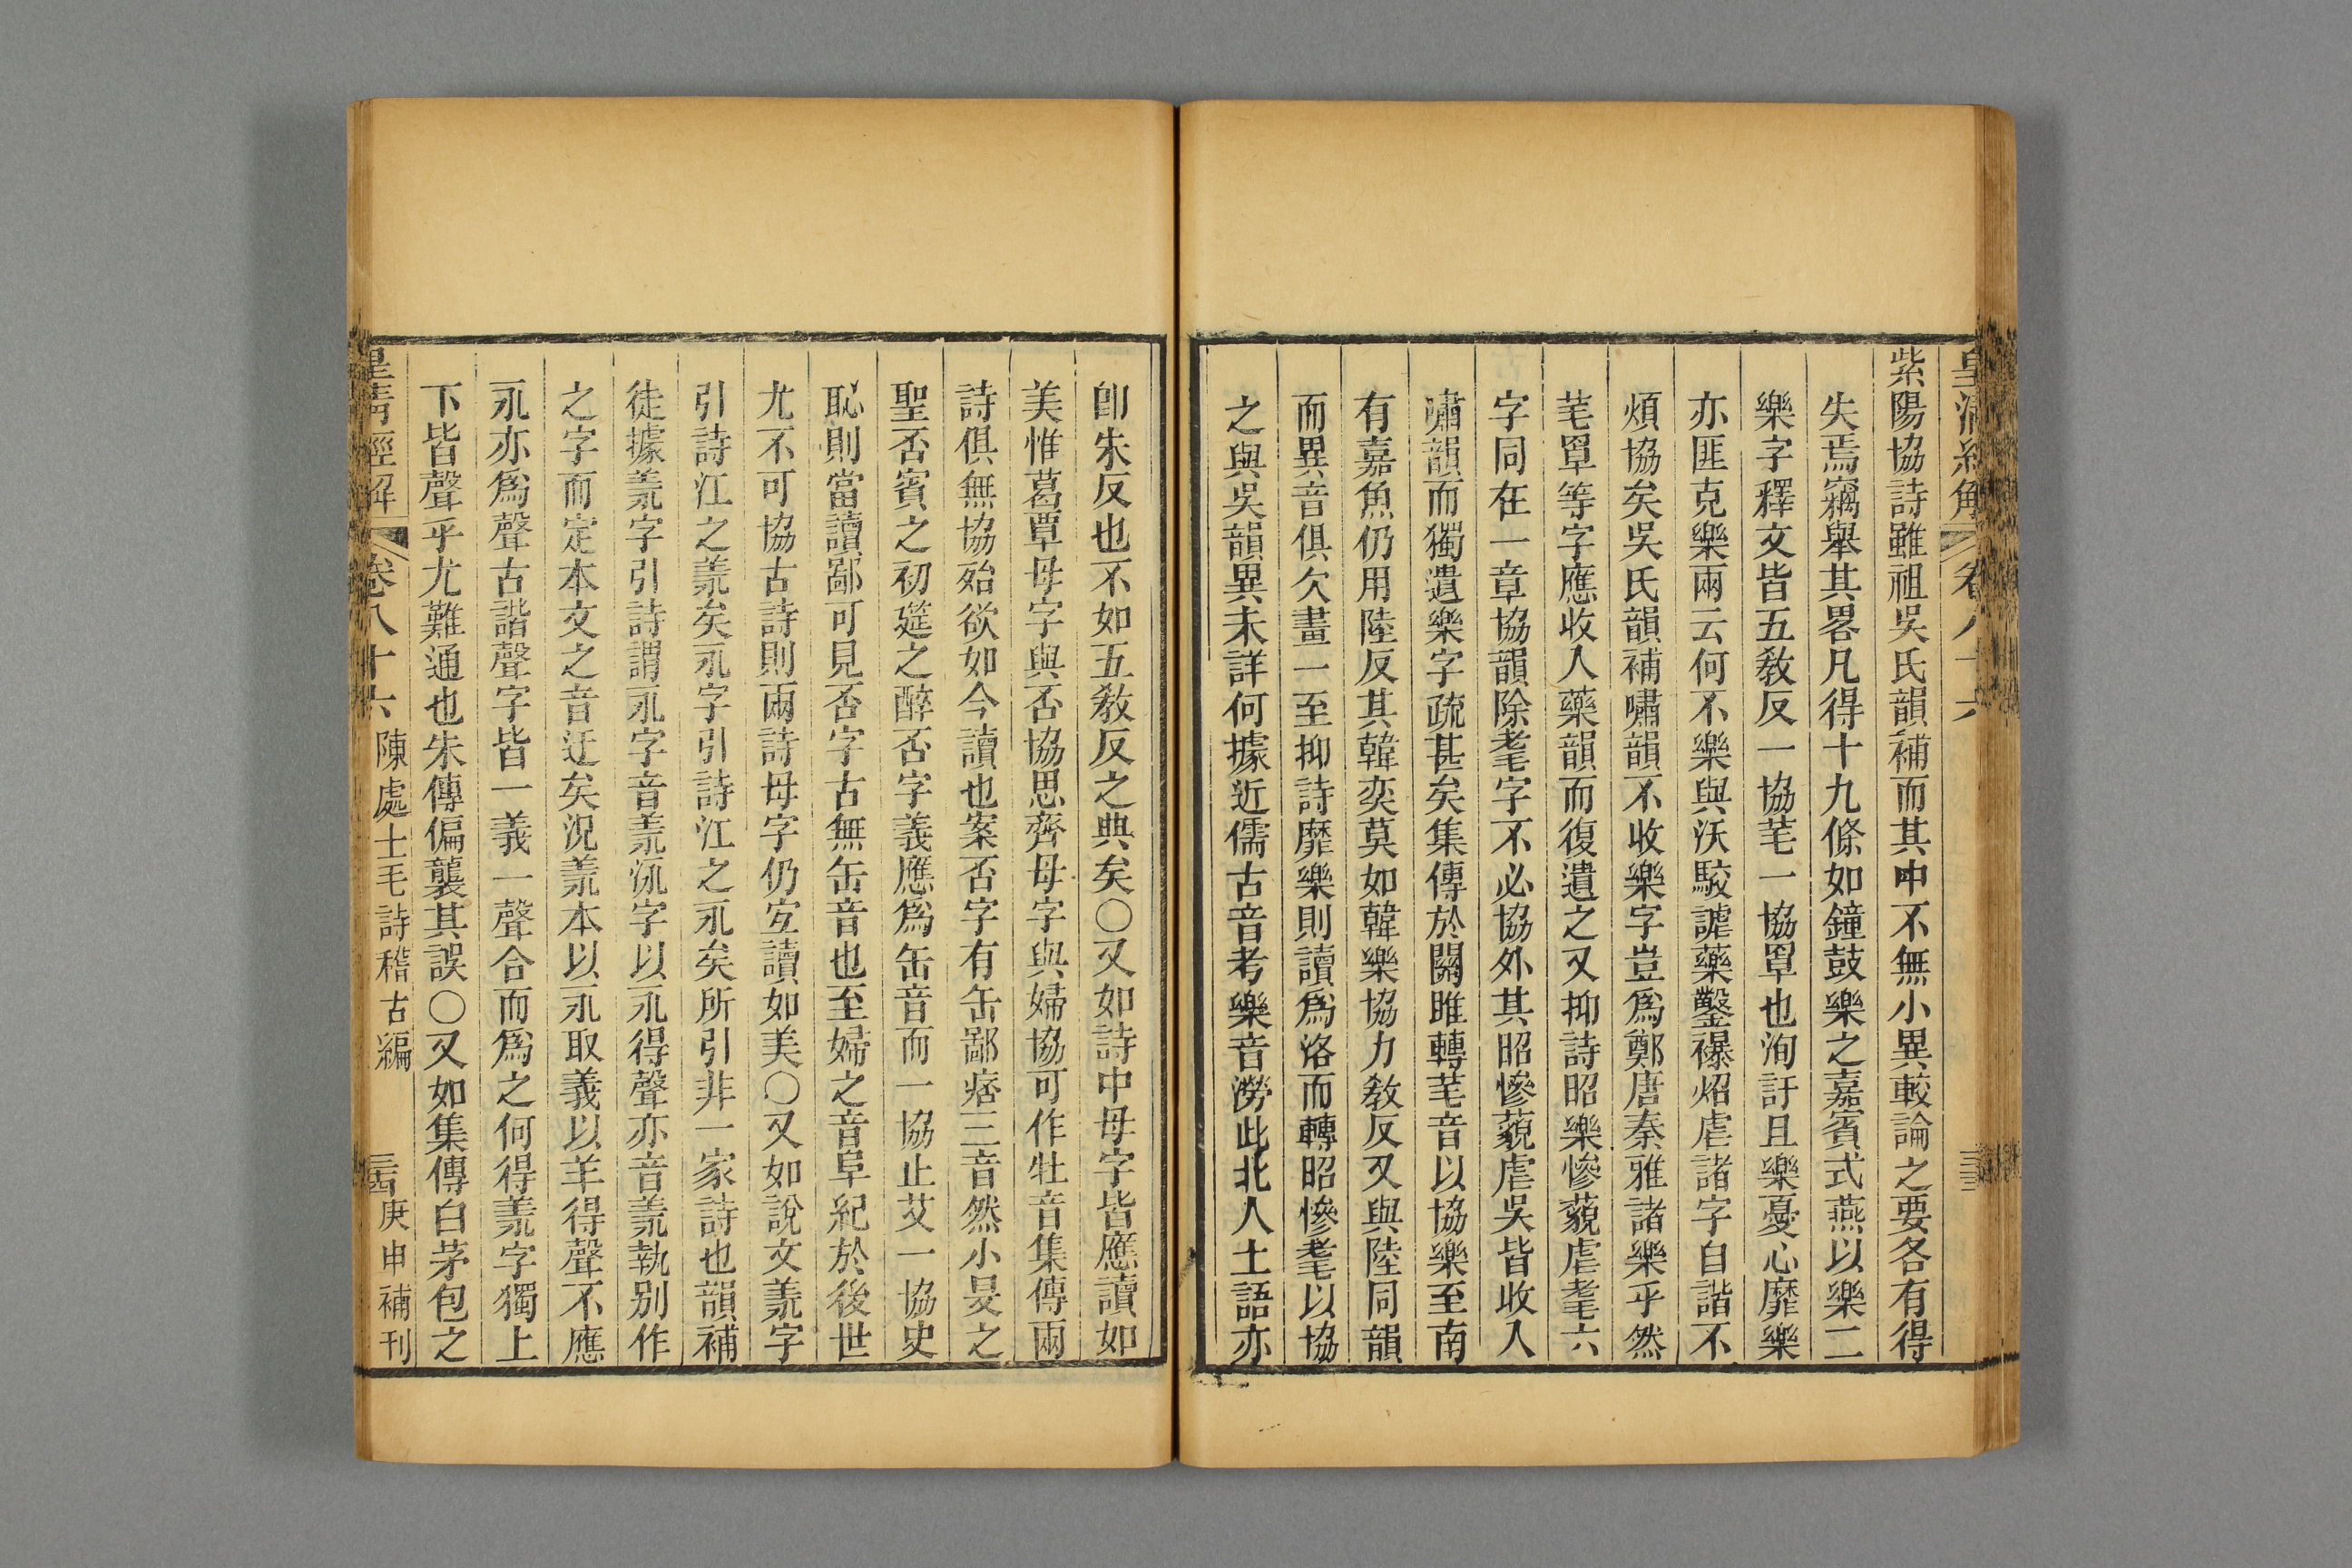 皇清經解 卷八十六
紫陽協詩雖祖吳氏韻補而其中不無小異較論之要各有得
失焉竊舉其畧凡得十九條如鐘鼓樂之嘉賓式燕以樂二
樂字釋文皆五教反一協芼一協罩也洵訏且樂憂心靡樂
亦匪克樂兩云何不樂與沃駮謔藥鑿襮炤虐諸字自諧不
煩協矣吳氏韻補嘯韻不收樂字豈為鄭唐秦雅諸樂乎然
芼罩等字應收入藥韻而復遺之又抑詩昭樂慘藐虐耄六
字同在一章協韻除耄字不必協外其昭慘藐虐吳皆收入
嘯韻而獨遺樂字疏甚矣集傳於關雎轉芼音以協樂至南
有嘉魚仍用陸反其韓奕莫如韓樂協力教反又與陸同韻
而異音俱欠畫一至抑詩靡樂則讀爲洛而轉昭慘耄以協
之與吳韻異未詳何據近儒古音考樂音澇此北人土語亦
卽朱反也不如五教反之典矣○又如詩中母字皆應讀如
美惟葛覃母字與否協思齊母字與婦協可作牡音集傳兩
詩俱無協殆欲如今讀也案否字有缶鄙痞三音然小旻之
聖否賓之初筵之醉否字義應爲缶音而一協止艾一協史
恥則當讀鄙可見否字古無缶音也至婦之音阜紀於後世
尤不可協古詩則兩詩母字仍宐讀如美○又如說文羕字
引詩江之羕矣永字引詩江之永矣所引非一家詩也韻補
徒據羕字引詩謂永字音羕泳字以永得聲亦音羕執别作
之字而定本文之音迂矣況羕本以永取義以羊得聲不應
永亦爲聲古諧聲字皆一義一聲合而爲之何得羕字獨上
下皆聲乎尤難通也朱傳偏襲其誤○又如集傳白茅包之
皇清經解 卷八十六 陳處士毛詩稽古編 庚申補刊